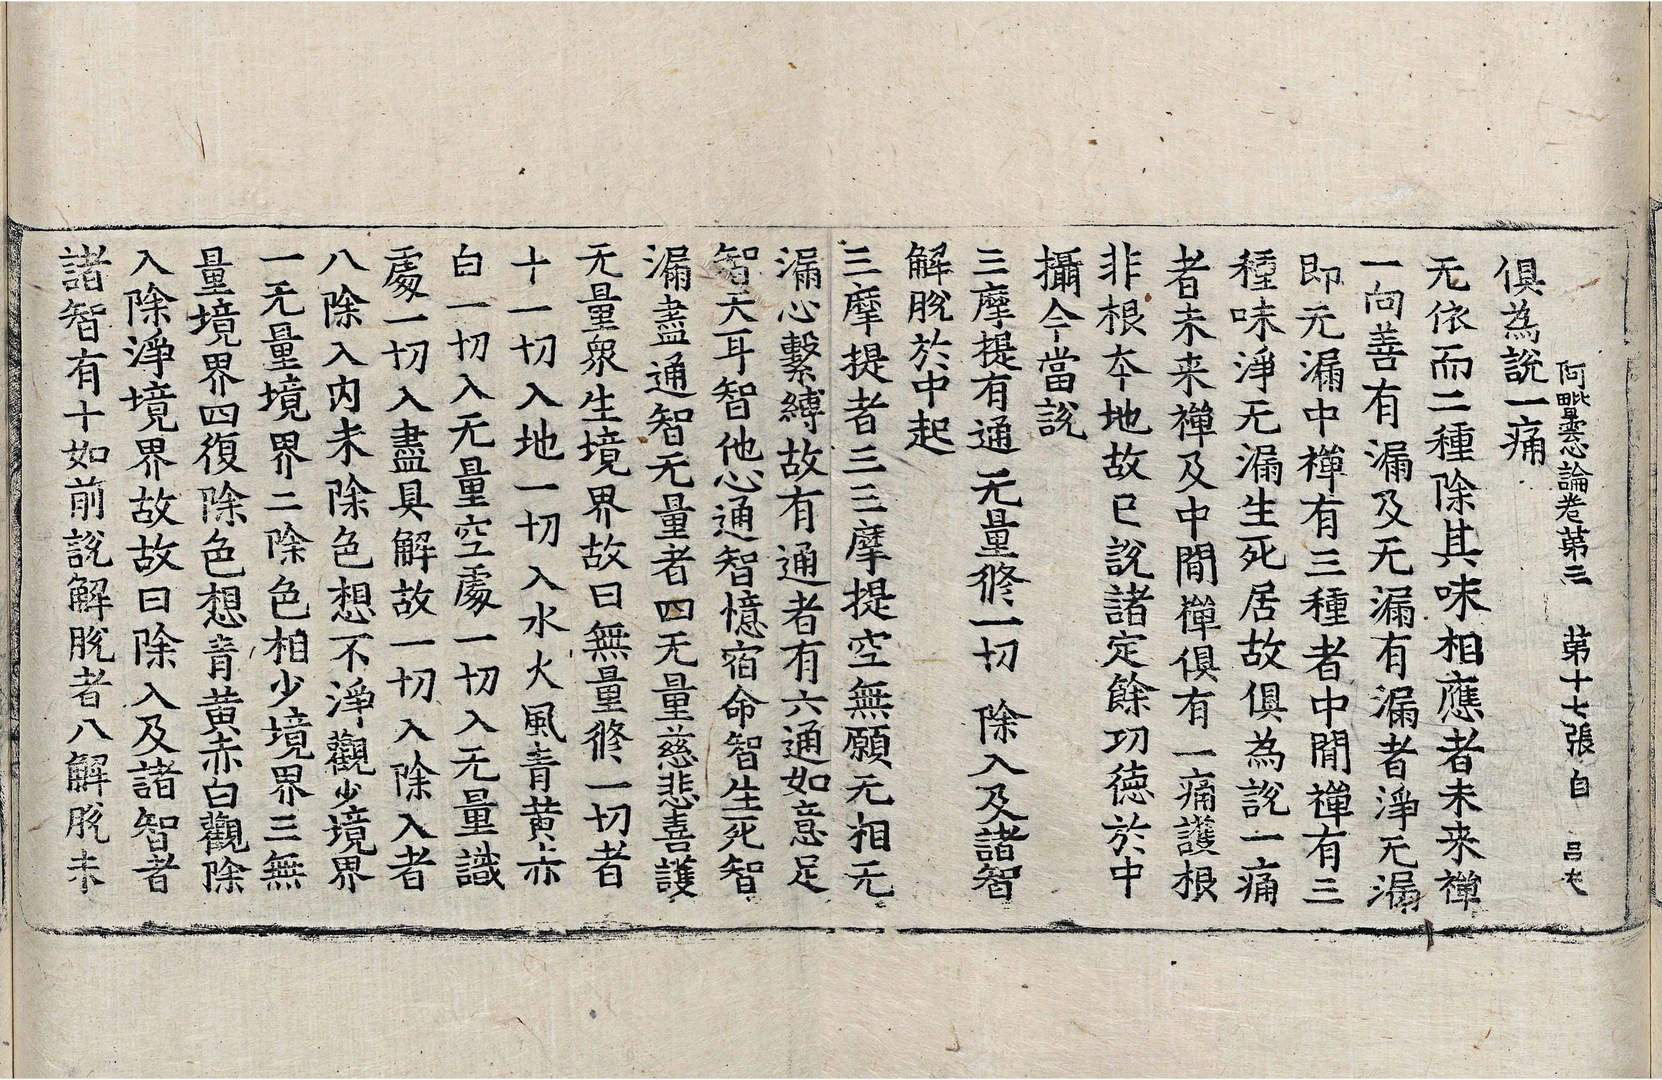 阿毗曇心論卷第三　第十七張　自　吕光
俱為說一痛
无依而二種除其味相應者未来禅
一向善有漏及无漏有漏者淨无漏
即无漏中禅有三種者中閒禅有三
種味淨无漏生死居故俱為說一痛
者未来禅及中閒禅俱有一痛護根
非根夲地故已說諸定餘功徳於中
攝今當説
三摩提有通　无量修一切　除入及諸智
解脫於中起
三摩提者三三摩提空無願无相无
漏心繫縛故有通者有六通如意足
智天耳智他心通智憶宿命智生死智
漏盡通智无量者四无量慈悲喜護
无量衆生境界故曰無量修一切者
十一切入地一切入水火風青黄赤
白一切入无量空處一切入无量識
處一切入盡具解故一切入除入者
八除入内未除色想不淨觀少境界
一无量境界二除色相少境界三無
量境界四復除色想青黄赤白觀除
入除淨境界故故曰除入及諸智者
諸智有十如前說解脫者八解脫未